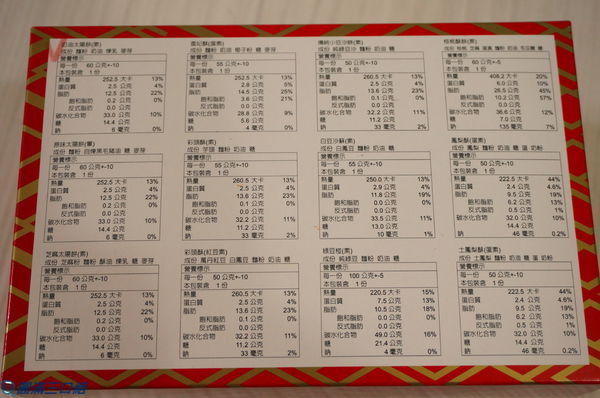 奶油太陽餅(素)
成份 麵粉 奶油 煉乳 麥芽
營養標示
每一份 60 公克+-10
本包裝含 1 份
熱量 252.5 大卡 13%
蛋白質 2.5 公克 4%
脂肪 12.5 公克 22%
飽和脂肪 0.2 公克 0%
反式脂肪 0 公克
碳水化合物 33.0 公克 10%
糖 14.4 公克
鈉 6 毫克 0%
原味太陽餅(葷)
成份 麵粉 自煉黑毛豬油 糖 麥芽
營養標示
每一份 60 公克+-10
本包裝含 1 份
熱量 252.5 大卡 13%
蛋白質 2.5 公克 4%
脂肪 12.5 公克 22%
飽和脂肪 0.2 公克 0%
反式脂肪 0 公克
碳水化合物 33.0 公克 10%
糖 14.4 公克
鈉 6 毫克 0%
芝麻太陽餅(素)
成份 芝麻粉 麵粉 酥油 煉乳 糖 麥芽
營養標示
每一份 60 公克+-10
本包裝含 1 份
熱量 252.5 大卡 13%
蛋白質 2.5 公克 4%
脂肪 12.5 公克 22%
飽和脂肪 0.2 公克 0%
反式脂肪 0 公克
碳水化合物 33.0 公克 10%
糖 14.4 公克
鈉 6 毫克 0%
酥(蛋素)
成份 麵粉 奶油 椰子粉 糖 麥芽
營養標示
每一份 55 公克+-10
本包裝含 1 份
熱量 252.5 大卡 13%
蛋白質 2.8 公克 5%
脂肪 14.5 公克 25%
飽和脂肪 3.6 公克 21%
反式脂肪 0 公克
碳水化合物 28.8 公克 9%
糖 5 公克
鈉 4 毫克 0%
彩頭酥(素)
成份 芋頭 麵粉 奶油 糖
營養標示
每一份 55 公克+-10
本包裝含 1 份
熱量 260.5 大卡 13%
蛋白質 2.5 公克 4%
脂肪 13.6 公克 23%
飽和脂肪 0.2 公克 0%
反式脂肪 0 公克
碳水化合物 32.2 公克 11%
糖 11.2 公克
鈉 33 毫克 2%
彩頭酥(紅豆素)
成份 萬丹紅豆 白鳳豆 麵粉 奶油 糖
營養標示
每一份 55 公克+-10
本包裝含 1 份
熱量 260.5 大卡 13%
蛋白質 2.5 公克 4%
脂肪 13.6 公克 23%
飽和脂肪 0.1 公克 0%
反式脂肪 0 公克
碳水化合物 32.2 公克 11%
糖 11.2 公克
鈉 33 毫克 2%
傳統小豆沙餅(素)
成份 純綠豆沙 麵粉 奶油 糖
營養標示
每一份 55 公克+-10
本包裝含 1 份
熱量 260.5 大卡 13%
蛋白質 2.5 公克 4%
脂肪 13.6 公克 23%
飽和脂肪 0.1 公克 0%
反式脂肪 0 公克
碳水化合物 32.2 公克 11%
糖 11.2 公克
鈉 33 毫克 2%
白豆沙酥(素)
成份 白鳳豆 麵粉 奶油 糖
營養標示
每一份 50 公克+-10
本包裝含 1 份
熱量 250.0 大卡 13%
蛋白質 2.9 公克 5%
脂肪 11.5 公克 19%
飽和脂肪 0 公克 0%
反式脂肪 0 公克
碳水化合物 33.5 公克 11%
糖 13.0 公克
鈉 33 毫克 2%
綠豆椪(素)
成份 純綠豆 麵粉 奶油 糖
營養標示
每一份 100 公克+-5
本包裝含 1 份
熱量 220.5 大卡 15%
蛋白質 7.5 公克 13%
脂肪 10.5 公克 18%
飽和脂肪 0 公克 0%
反式脂肪 0 公克
碳水化合物 49.0 公克 16%
糖 21.4 公克
鈉 4 毫克 0%
核桃酥餅(素)
營養標示
每一份 60 公克+-5
本包裝含 1 份
熱量 408.2 大卡 20%
蛋白質 6.0 公克 10%
脂肪 26.5 公克 45%
飽和脂肪 10.2 公克 57%
反式脂肪 0 公克
碳水化合物 36.6 公克 12%
糖 7.0 公克
鈉 135 毫克 7%
鳳梨酥(蛋素)
成份 鳳梨 麵粉 奶油 糖 蛋 奶粉
營養標示
每一份 50 公克+-10
本包裝含 1 份
熱量 222.5 大卡 44%
蛋白質 2.4 公克 4.6%
脂肪 9.5 公克 19%
飽和脂肪 6.2 公克 13%
反式脂肪 0.5 公克 1%
碳水化合物 32.0 公克 12%
糖 19.0 公克
鈉 46 毫克 0.2%
土鳳梨酥(蛋素)
成份 土鳳梨 麵粉 奶油 糖 蛋 奶粉
營養標示
每一份 50 公克+-10
本包裝含 1 份
熱量 222.5 大卡 44%
蛋白質 2.4 公克 4.6%
脂肪 9.5 公克 19%
飽和脂肪 6.2 公克 13%
反式脂肪 0.5 公克 1%
碳水化合物 32.0 公克 12%
糖 19.0 公克
鈉 46 毫克 0.2%